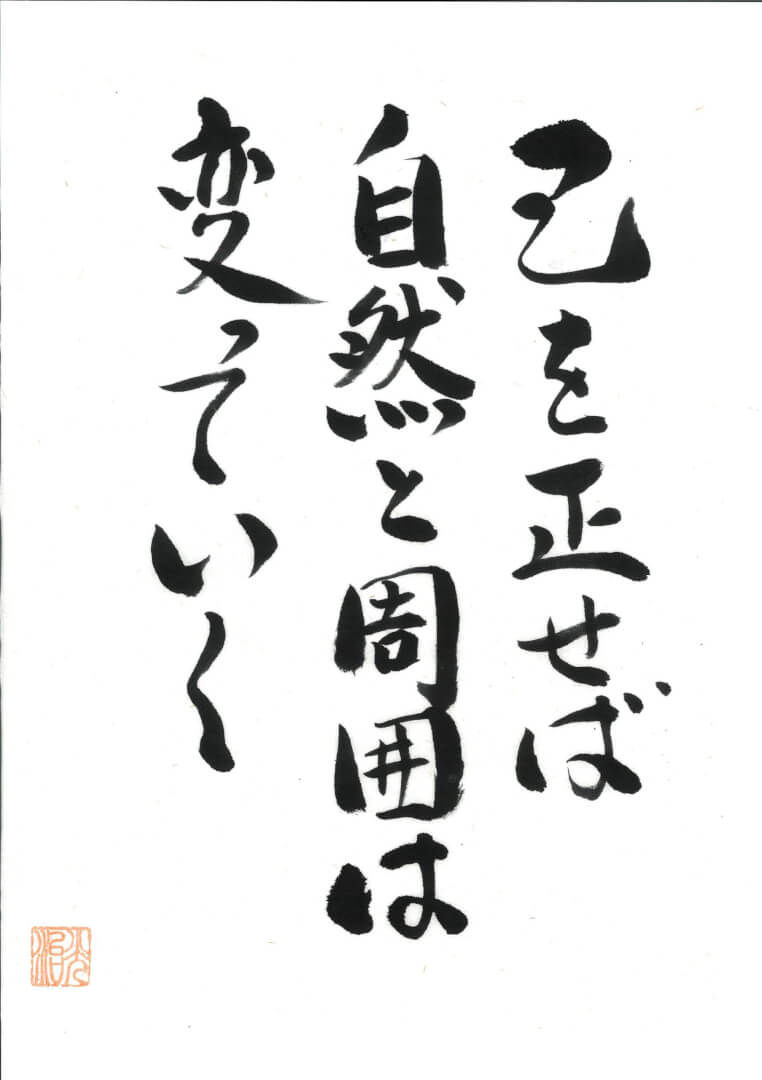 己を正せば
自然と周囲は
変っていく